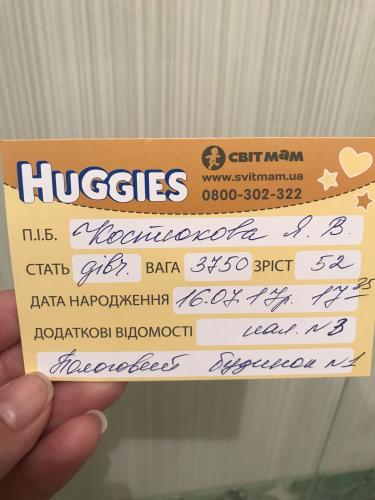 СВІТ МАМ
HUGGIES
www.svitmam.ua
0800-302-322
П.І.Б. Костюкова Я. В.
СТАТЬ дівч. ВАГА 3750 ЗРІСТ 52
ДАТА НАРОДЖЕННЯ 16.07.17р. 17 35
ДОДАТКОВІ ВІДОМОСТІ пал. N3
Пологовий будинок N1